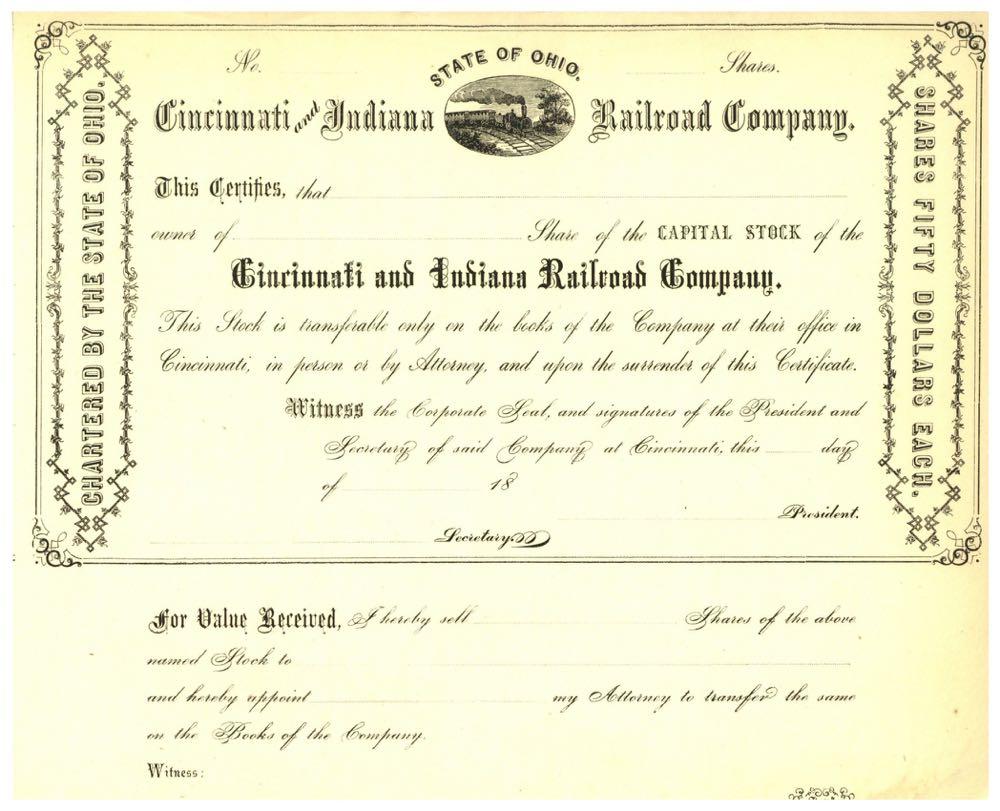 No. STATE OF OHIO. Shares.
Cincinnati and Indiana Railroad Company.
CHARTERED BY THE STATE OF OHIO.
This Certifies, that
owner of Share of the CAPITAL STOCK of the
Cincinnati and Indiana Railroad Company.
This Stock is transferable only on the books of the Company at their office in
Cincinnati, in person or by Attorney, and upon the surrender of this Certificate.
Witness the Corporate Seal, and signatures of the President and
Secretary of said Company at Cincinnati, this day
of 18
President.
Secretary
SHARES FIFTY DOLLARS EACH.
For Value Received, I hereby sell Shares of the above
named Stock to
and hereby appoint my Attorney to transfer the same
on the Books of the Company.
Witness: